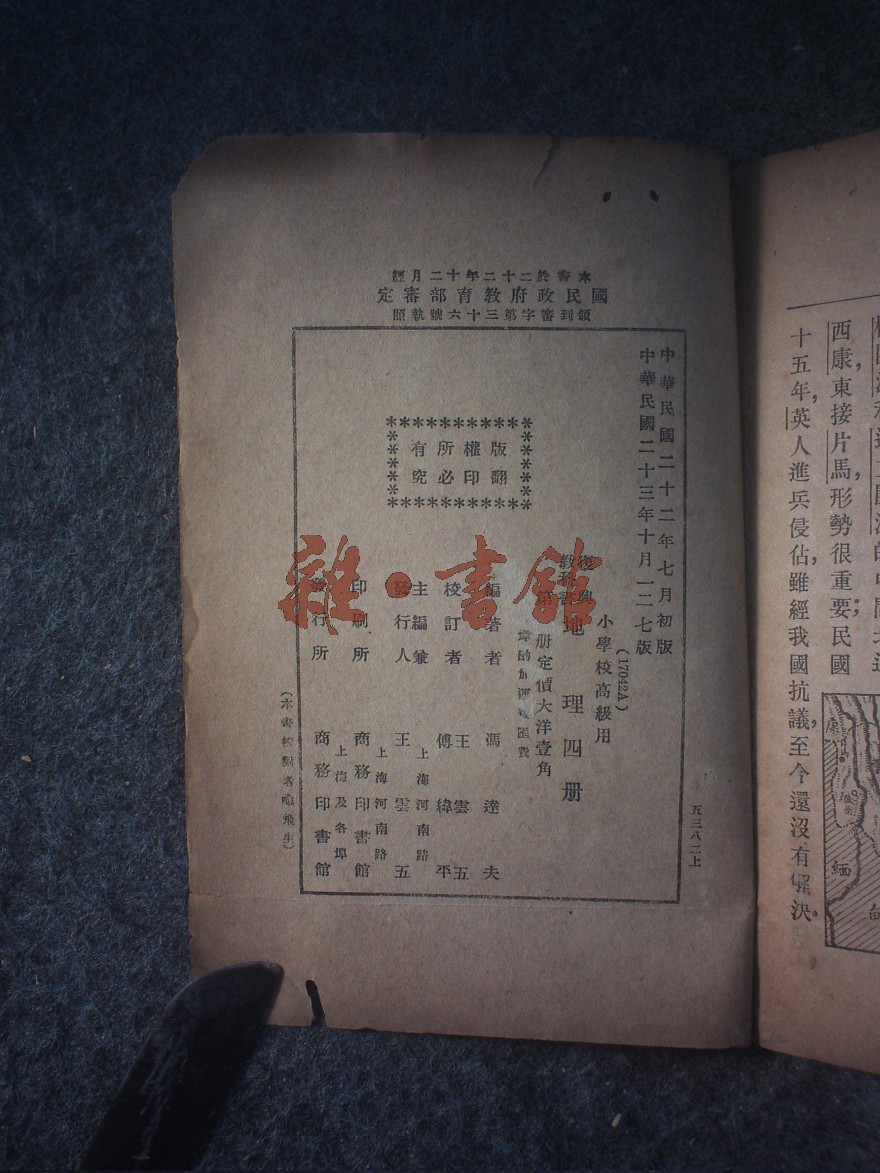 本書於二十二年十二月經
國民政府教育部審定
領到審字第三十六號執照
中華民國二十二年七月初版
中華民國二十三年十月一二七版
(17042A)
小學校高級用
復興
教科書
地理四册
册定價大洋壹角
外埠酌加運費匯費
編著者 馮達夫
校訂者 王雲五 傅緯平
主編兼
發行人 王雲五
上海河南路
印刷所 商務印書館
上海河南路
發行所 商務印書館
上海及各埠
版權所有
翻印必究
(本書校對者喻飛生)
五三八二上
雜·書館
西康，東接片馬，形勢很重要；民國
十五年，英人進兵侵佔，雖經我國抗議，至今還沒有解決。
康
緬